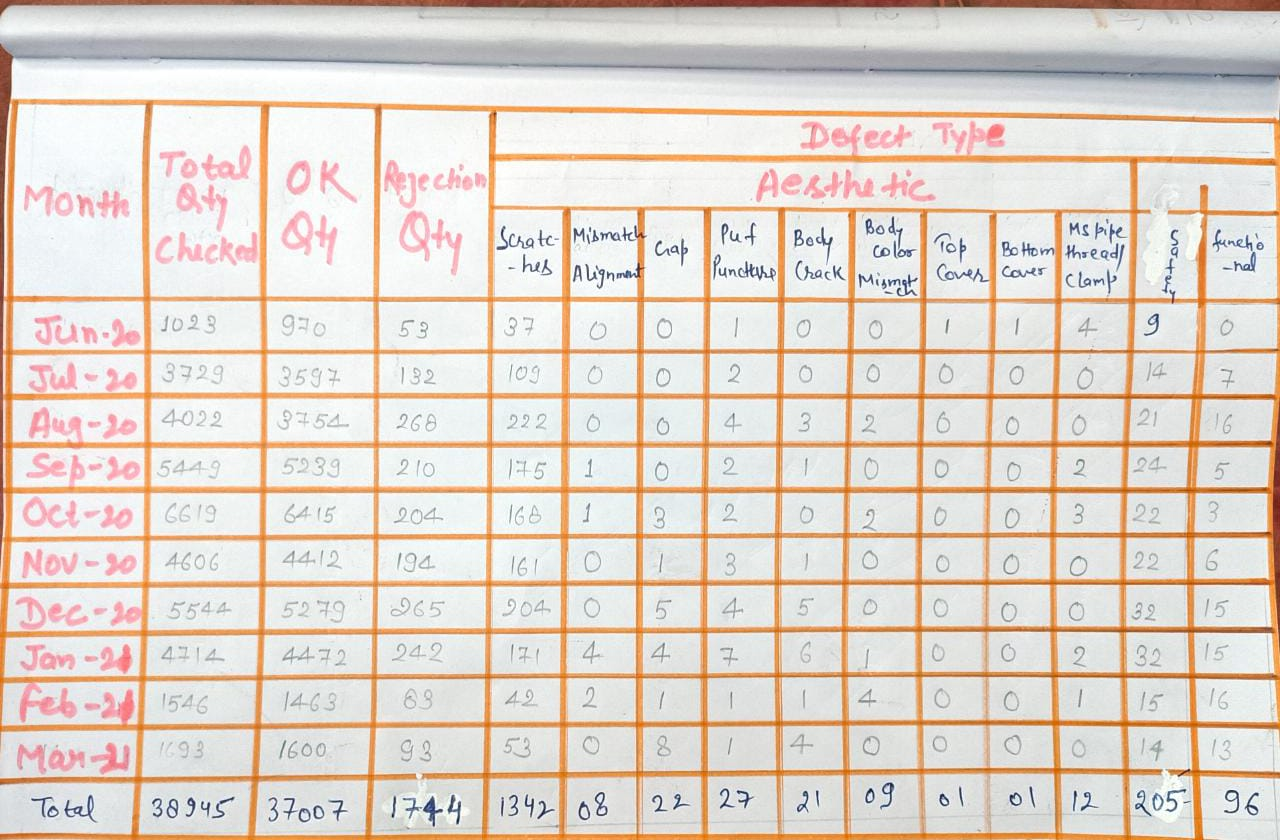 Defect Type
Aesthetic
Month Total Qty Checked OK Qty Rejection Qty Scratc-hes Mismatch Alignment Gap Puf Puncture Body Crack Body color Mismat-ch Top Cover Bottom cover MS pipe thread/ clamp Safety functio-nal
Jun-20 1023 970 53 37 0 0 1 0 0 1 1 4 9 0
Jul-20 3729 3597 132 109 0 0 2 0 0 0 0 0 14 7
Aug-20 4022 3754 268 222 0 0 4 3 2 0 0 0 21 16
Sep-20 5449 5239 210 175 1 0 2 1 0 0 0 2 24 5
Oct-20 6619 6415 204 168 1 3 2 0 2 0 0 3 22 3
Nov-20 4606 4412 194 161 0 1 3 1 0 0 0 0 22 6
Dec-20 5544 5279 265 204 0 5 4 5 0 0 0 0 32 15
Jan-21 4714 4472 242 171 4 4 7 6 1 0 0 2 32 15
Feb-21 1546 1463 83 42 2 1 1 1 4 0 0 1 15 16
Mar-21 1693 1600 93 53 0 8 1 4 0 0 0 0 14 13
Total 38945 37007 1744 1342 08 22 27 21 09 01 01 12 205 96